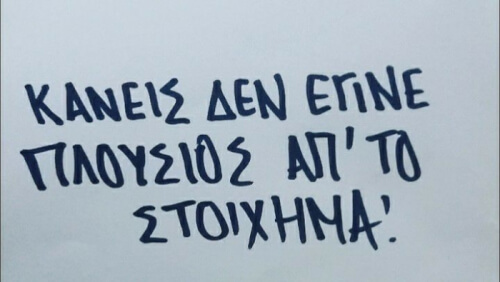 ΚΑΝΕΙΣ ΔΕΝ ΕΓΙΝΕ
ΠΛΟΥΣΙΟΣ ΑΠ' ΤΟ
ΣΤΟΙΧΗΜΑ!